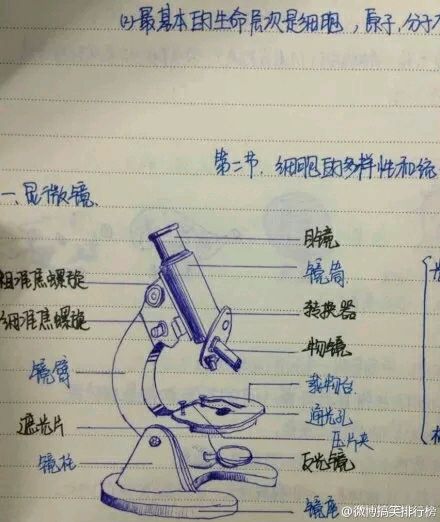 (2)最基本的生命层次是细胞，原子，分子
第二节.细胞的多样性和统
一、显微镜.
目镜
镜筒
粗准焦螺旋
转换器
细准焦螺旋
物镜
镜臂
载物台
通光孔
遮光片
压片夹
镜柱
反光镜
镜座
@微博搞笑排行榜